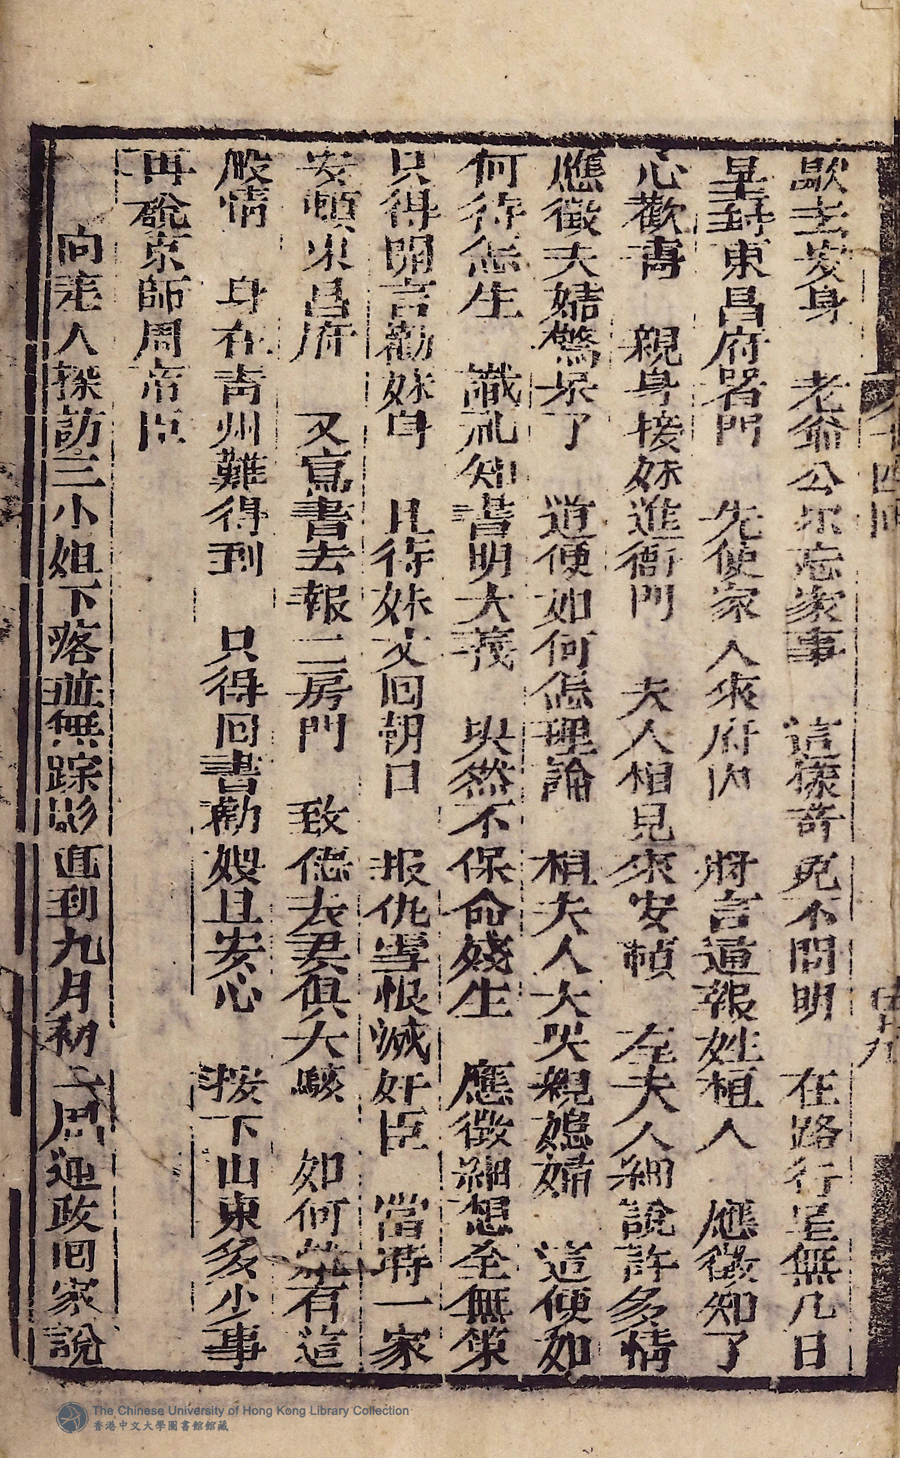 歇去安身　老爺公尔忘家事　這様奇寃不問明　在路行呈無几日
呈封東昌府署門　先使家人來府內　將言通報姓桓人　應徵知了
心歡喜　親身接妹進衙門　夫人相見來安頓　左夫人細說許多情
應徵夫婦驚呆了　道便如何怎理論　桓夫人大哭親媳婦　這便如
何待怎生　識禮知書明大義　斷然不保命殘生　應徵細想全無策
只得明言勸妹身　且待妹丈回朝日　报仇雪恨滅奸臣　當時一家
安頓東昌府　又寫書去報二房門　致德夫妻俱大駭　如何竟有這
般情　身在青州難得到　只得回書勸嫂且安心　按下山東多少事
再說京師周帝臣
向老人探訪三小姐下落並無踪影直到九月初　周通政回家說
十四回
The Chinese University of Hong Kong Library Collection
香港中文大學圖書館館藏